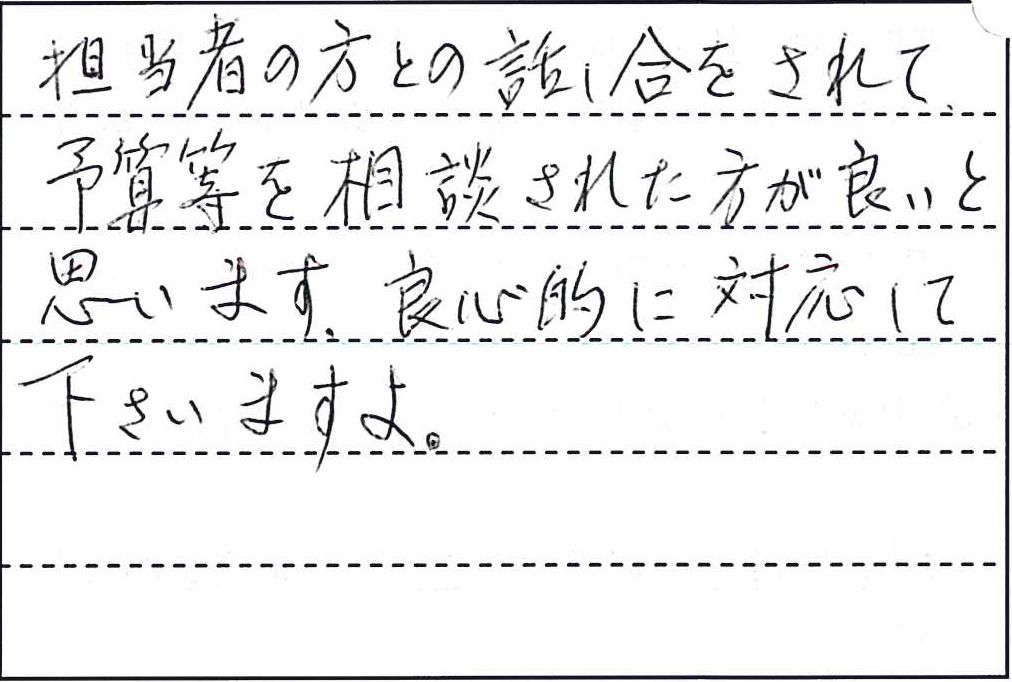 担当者の方との話し合をされて、
予算等を相談された方が良いと
思います、良心的に対応して
下さいますよ。